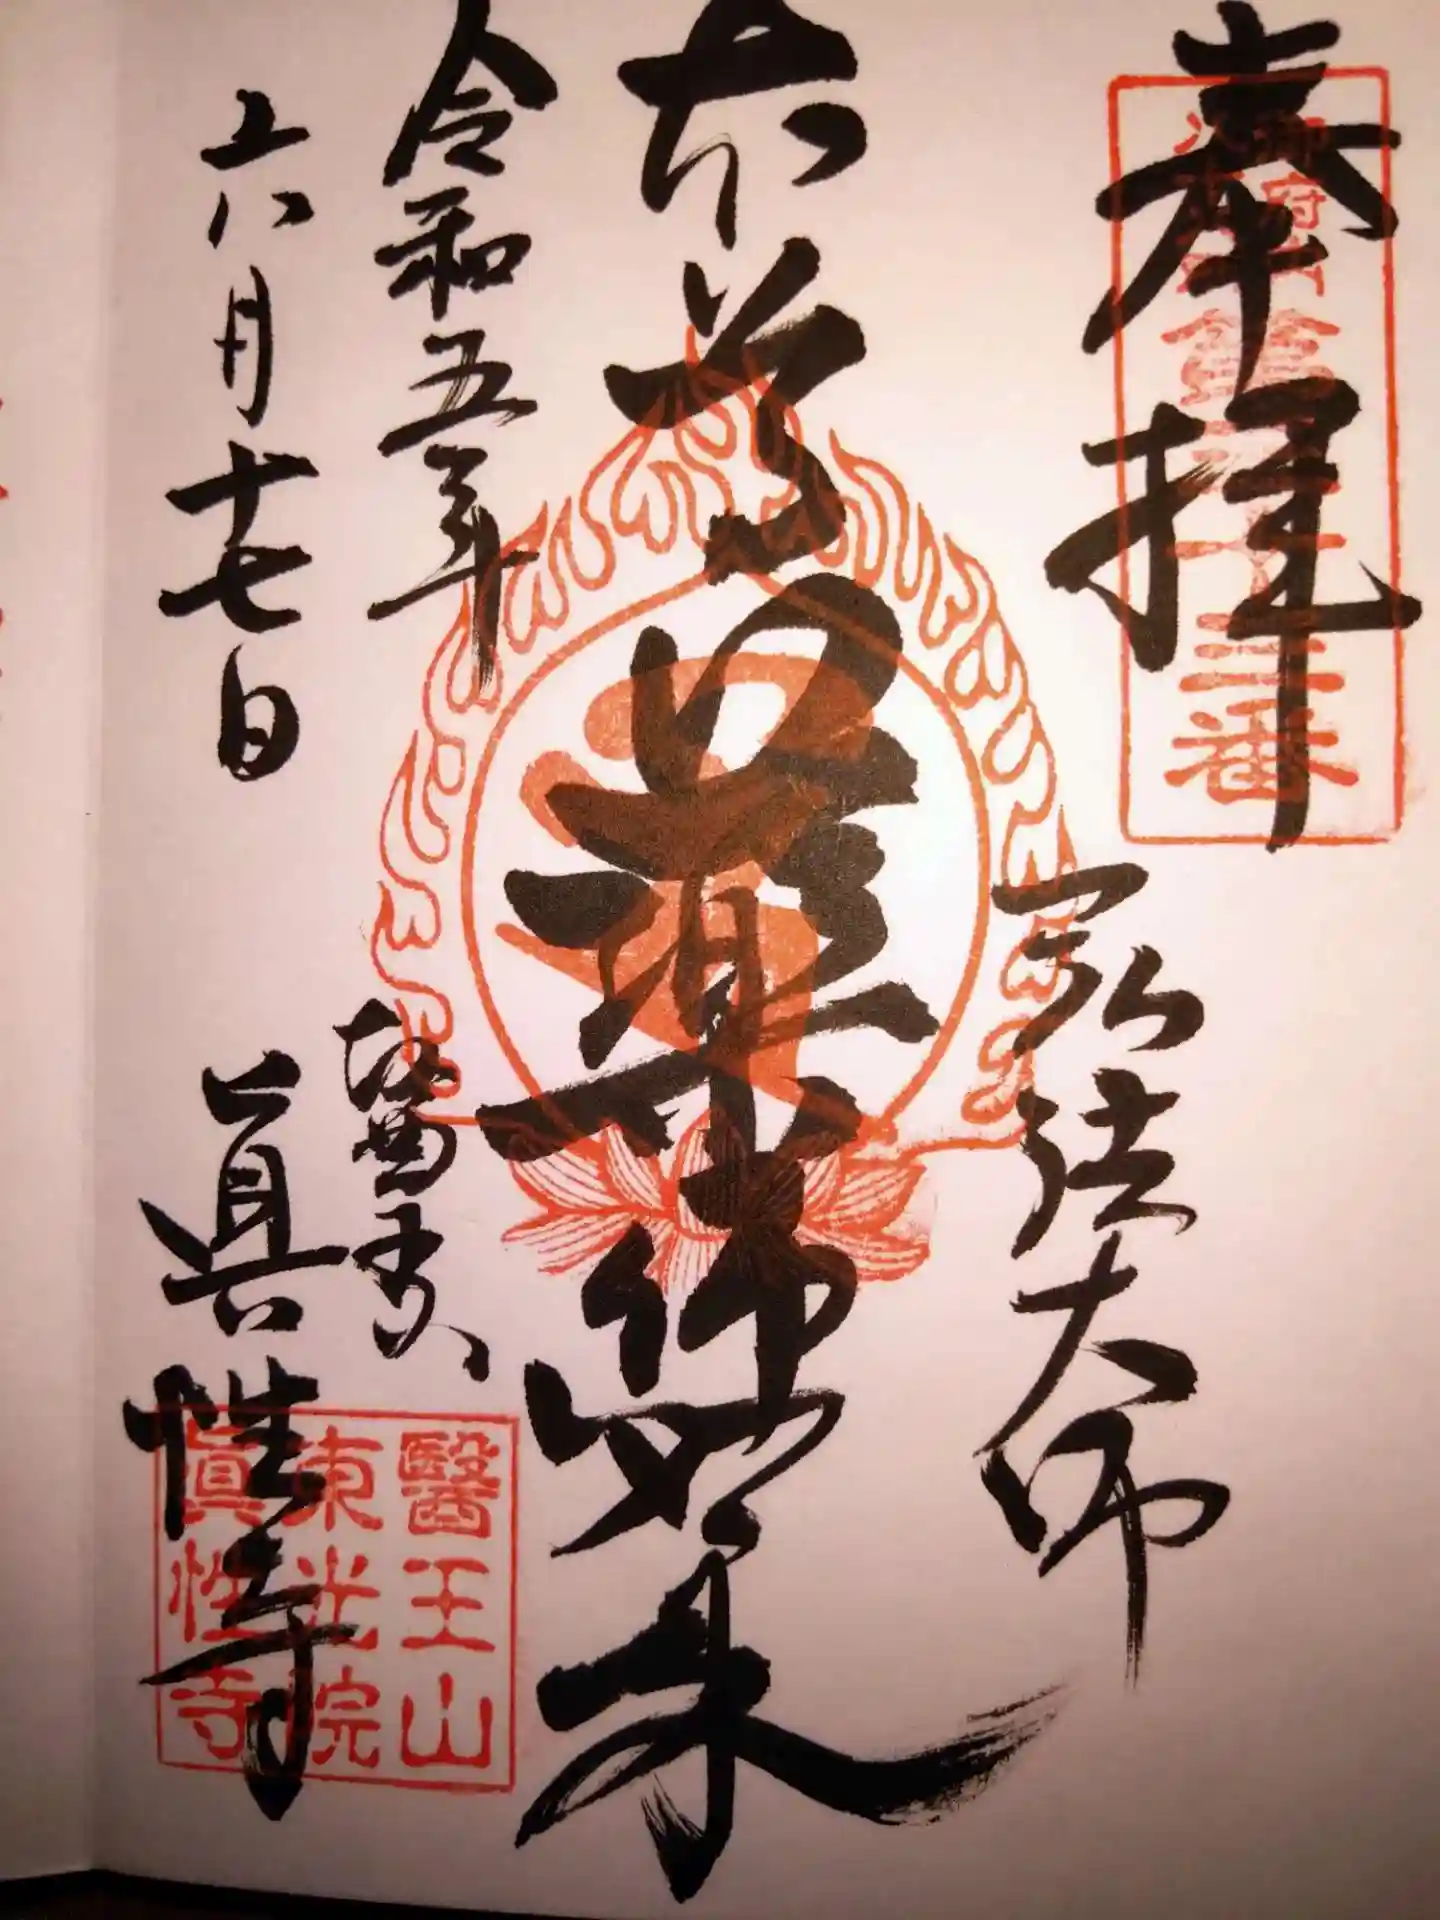 奉拝
御府内
第三十三番
弘法大師
本尊薬師如来
令和五年
六月十七日
眞性寺
醫王山
東光院
眞性寺